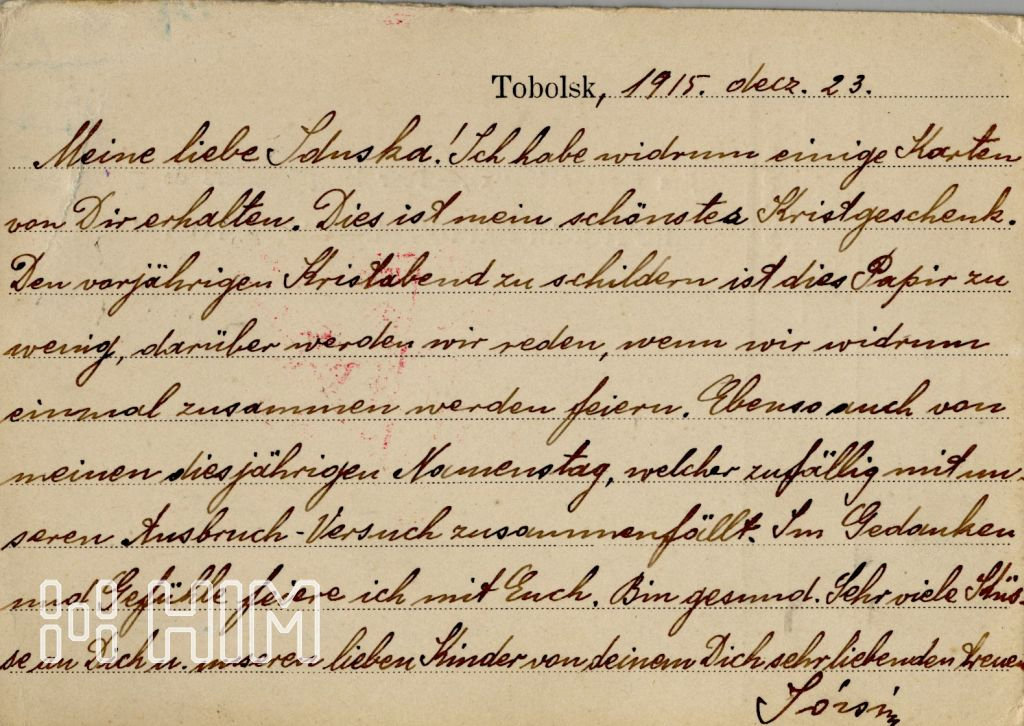 Tobolsk, 1915. decz. 23.
Meine liebe Iduska! Ich habe widrum einige Karten
von Dir erhalten. Dies ist mein schönstes Kristgeschenk.
Den vorjährigen Kristabend zu schildern ist dies Papir zu
wenig, darüber werden wir reden, wenn wir widrum
einmal zusammen werden feiern. Ebenso auch von
meinen diesjährigen Namenstag, welcher zufällig mit un-
seren Ausbruch-Versuch zusammenfällt. Im Gedanken
und Gefühle feiere ich mit Euch. Bin gesund. Sehr viele Küs-
se an Dich u. unseren lieben Kinder von deinem Dich sehr liebenden treuen
HIM